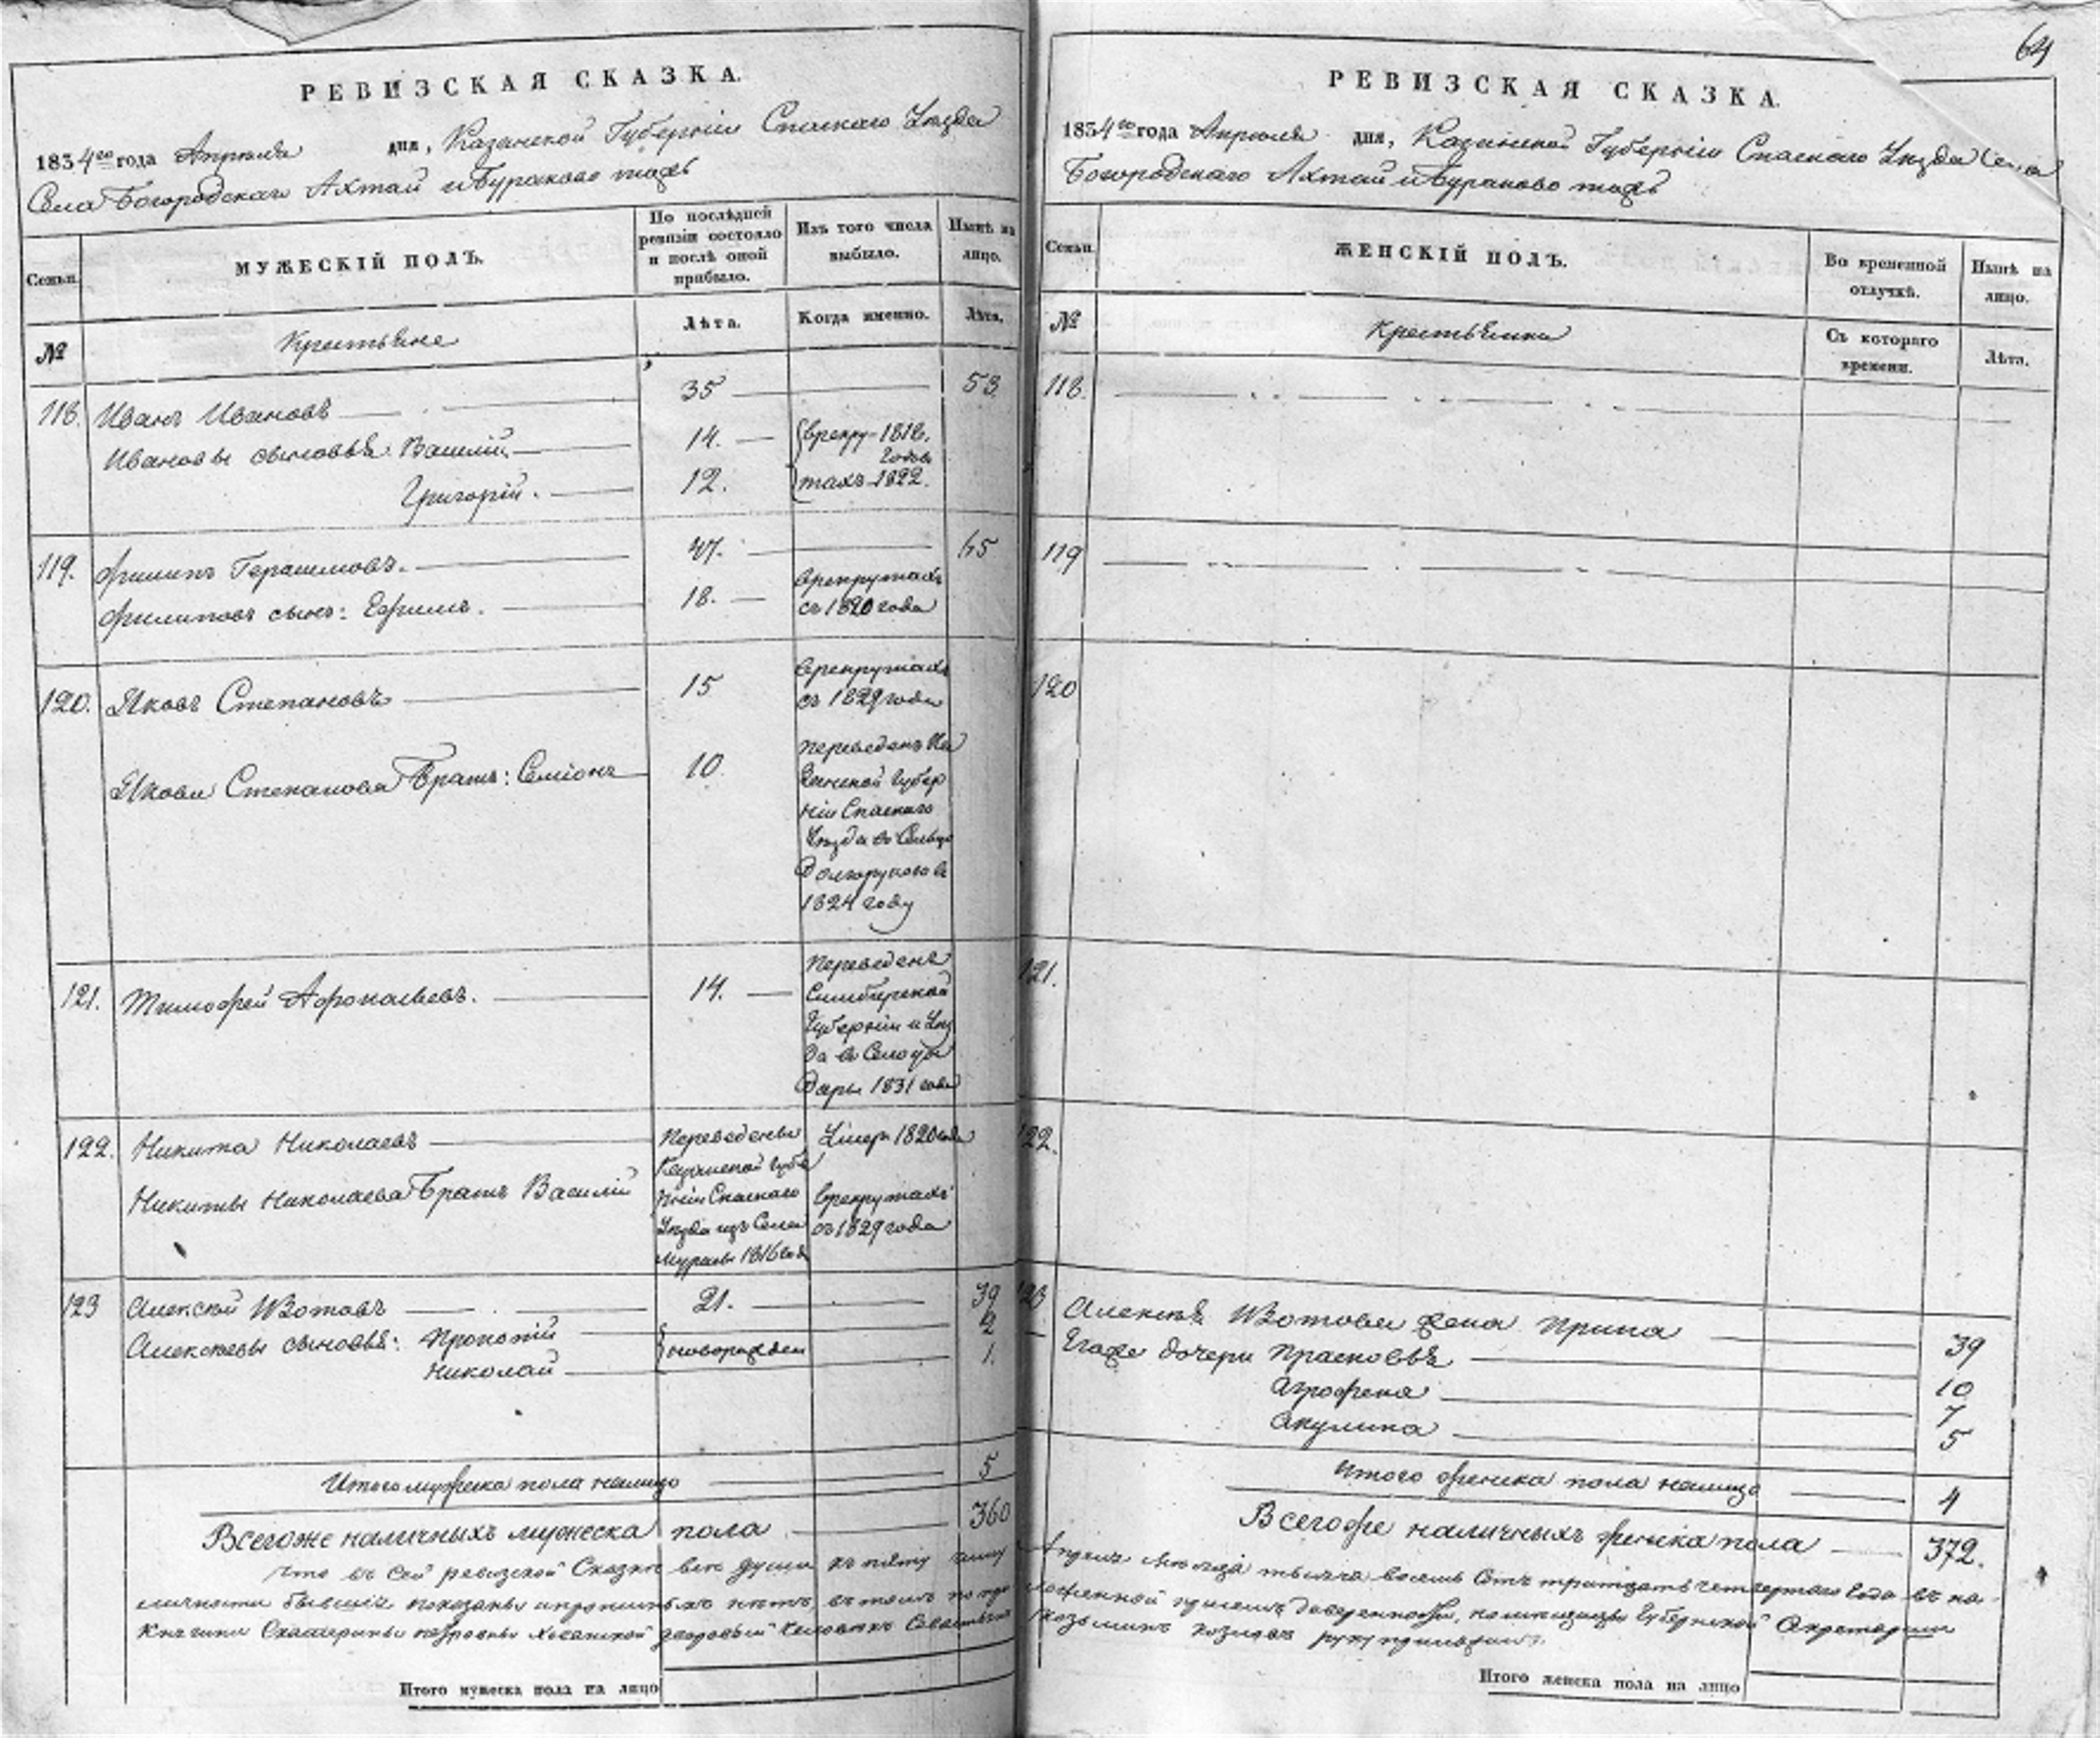 64
РЕВИЗСКАЯ СКАЗКА.
1834го года Апреля дня, Казанской Губерніи Спаскаго Уезда
Села Богородскаго Ахтай и Бураково тожъ
Семьи.
МУЖЕСКІЙ ПОЛЪ.
По послѣдней ревизіи состояло и послѣ оной прибыло.
Изъ того числа выбыло.
Нынѣ на лицо.
№
Крестьяне
Лѣта.
Когда именно.
Лѣта.
118. Иванъ Ивановъ 35 53
Ивановы сыновья: Василій 14. врекру- 1818.
годовъ
Григорій. 12. тахъ 1822.
119. Филипъ Герасимовъ. 47. 65
Филиповъ сынъ: Ефимъ. 18. врекрутахъ
съ 1820 года
120. Яковъ Степановъ 15 врекрутахъ
съ 1829 года
Якова Степанова Братъ: Семіонъ 10. переведенъ Ка
занской Губер
ніи Спаскаго
Уезда въ Сельцо
Долгоруково въ
1824 году
121. Тимофей Афонасьевъ. 14. Переведенъ
Симбирской
Губерніи и Уез
да въ Село
1831 года
122. Никита Николаевъ Переведены Умеръ 1820 года
Казанской Губе
Никиты Николаева Братъ Василій рніи Спаскаго врекрутахъ
Уезда изъ Села съ 1829 года
1816 года
123 Алексей Изотовъ 21. 39
Алексеевы сыновья: Прокопій новорожден 2
Николай 1.
Итого мужеска пола налицо 5
Всегоже наличныхъ мужеска пола 360
Что въ сей ревизской Сказке все души къ
личности бывшіе показаны и прописныхъ нетъ, въ томъ по
Княгини Екатерины Петровны Хованской дворовый человекъ
Итого мужеска пола на лицо
РЕВИЗСКАЯ СКАЗКА.
1834го года Апреля дня, Казанской Губерніи Спаскаго Уезда Села
Богородскаго Ахтай и Бураково тожъ
Семьи.
ЖЕНСКІЙ ПОЛЪ.
Во временной отлучкѣ.
Нынѣ на лицо.
№
Крестьянки
Съ котораго времени.
Лѣта.
118.
119
120
121.
122.
123 Алексея Изотова жена Ирина 39
Егоже дочери Прасковья 10
Агрофена 7
Акулина 5
Итого женска пола налицо 4
Всегоже наличныхъ женска пола 372.
тысяча восемь Сотъ тритцать четвертаго Года въ
доверенности, Губернской Секретарши
Козловъ руку приложилъ.
Итого женска пола на лицо